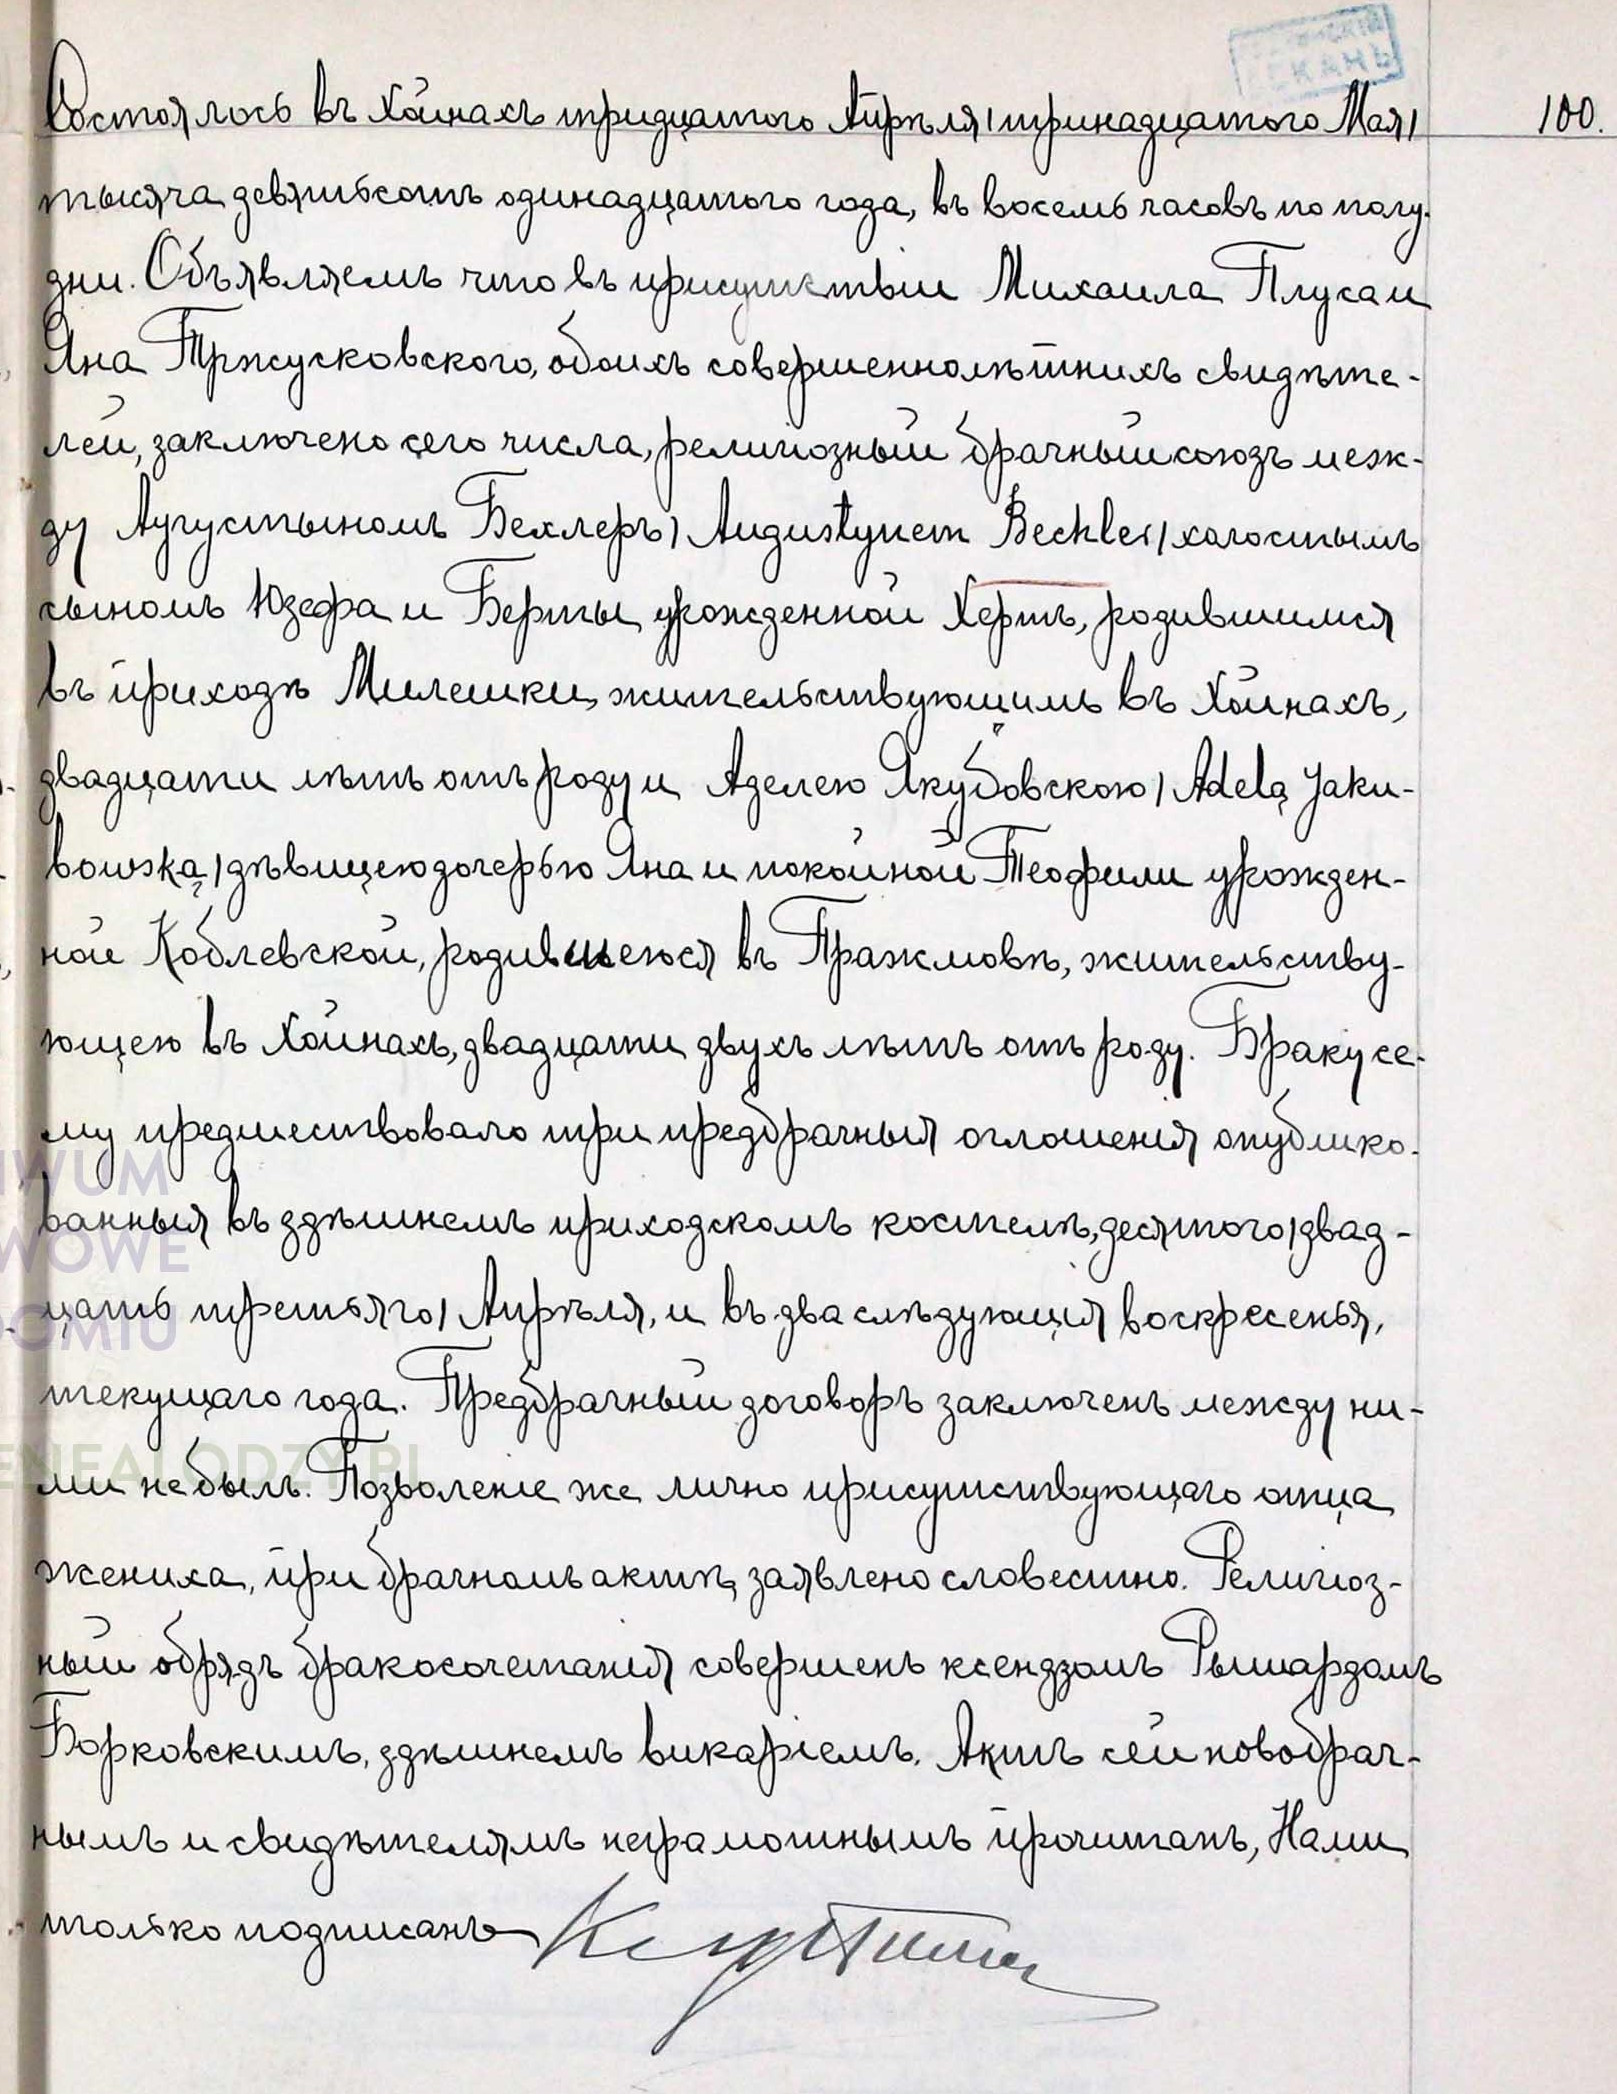 Состоялось въ Хойнахъ тридцатого Апрѣля/тринадцатого Мая/ 100.
тысяча девятьсотъ одинадцатого года, въ восемь часовъ по полу-
дни. Объявляемъ что въ присутствіи Михаила Плуса и
Яна Тржусковского, обоихъ совершеннолѣтнихъ свидѣте-
лей, заключено сего числа, религіозный брачный союзъ меж-
ду Аугустыномъ Бехлеръ/Augustynem Bechler/холостымъ
сыномъ Юзефа и Берты урожденной Хертъ, родившимся
въ приходѣ Милешки, жительствующимъ въ Хойнахъ,
двадцати лѣтъ отъ роду и Аделею Якубовскою/Adelą Jaku-
bowską/дѣвицею дочерью Яна и покойной Теофили урожден-
ной Коблевской, родившеюся въ Пражмовѣ, жительству-
ющею въ Хойнахъ, двадцати двухъ лѣтъ отъ роду. Браку се-
му предшествовало три предбрачныя оглошенія опублико-
ванныя въ здѣшнемъ приходскомъ костелѣ, десятого/двад-
цать третьяго/Апрѣля, и въ два слѣдующія воскресенья,
текущаго года. Предбрачный договоръ заключенъ между ни-
ми не былъ. Позволеніе же лично присутствующаго отца
жениха, при брачномъ актѣ, заявлено словестно. Религіоз-
ный обрядъ бракосочетанія совершенъ ксендзомъ Рышардомъ
Борковскимъ, здѣшнемъ викаріемъ. Актъ сей новобрач-
нымъ и свидѣтелямъ неграмотнымъ прочитанъ, Нами
только подписанъ